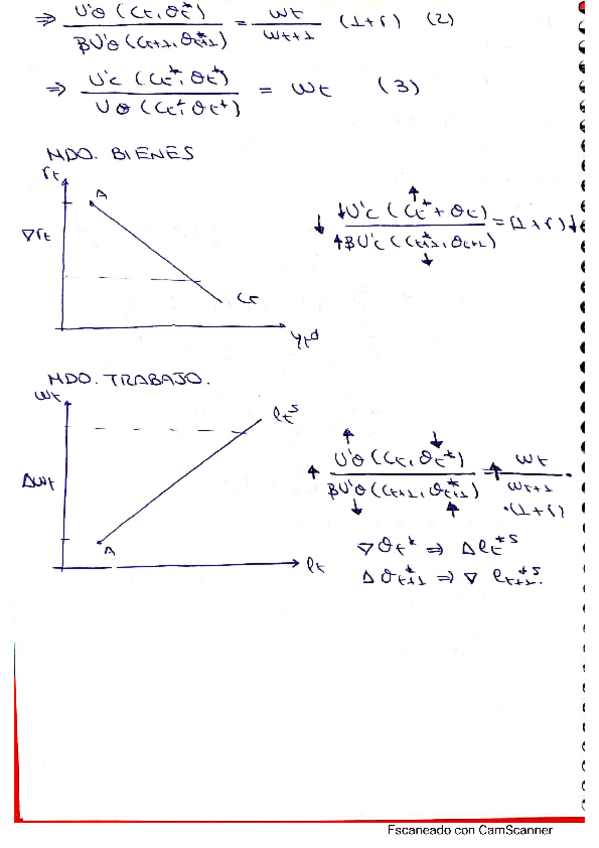 ⇒ U'θ (Ct, θt*) / βU'θ (Ct+1, θt+1*) = Wt / Wt+1 (1+r) (2)
⇒ U'c (Ct*, θt*) / Uθ (Ct*, θt*) = Wt (3)
MDO. BIENES
rt
A
∇rt
Ct
Ytd
↓ ↓U'c (Ct*↑ + θt) / ↑βU'c (Ct+1*↓, θt+1) = (1+r)↓
MDO. TRABAJO.
Wt
lts
ΔWt
A
lt
↑ ↑U'θ (Ct, θt*↓) / βU'θ↓ (Ct+1, θt+1*↑) = ↑ Wt / Wt+1 ·
·(1+r)
∇θt* ⇒ Δlt*s
Δθt+1* ⇒ ∇ lt+1*s.
Escaneado con CamScanner